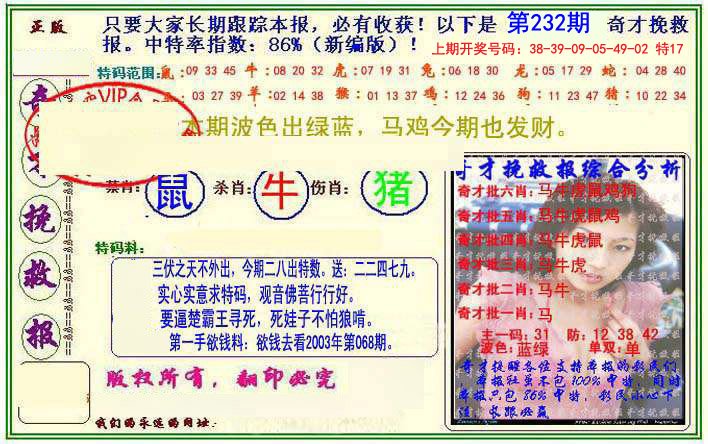 正版
只要大家长期跟踪本报，必有收获！以下是 第232期 奇才挽救
报。中特率指数：86%（新编版）！
上期开奖号码：38-39-09-05-49-02 特17
特码范围：鼠：09 33 45 牛：08 20 32 虎：07 19 31 兔：06 18 30 龙：05 17 29 蛇：04 28 40
VIP 03 27 39 羊：02 14 38 猴：01 13 37 鸡：12 24 36 狗：11 23 47 猪：10 22 34
本期波色出绿蓝，马鸡今期也发财。
奇
挽
救
报
禁肖：鼠 杀肖：牛 伤肖：猪
特码料：
三伏之天不外出，今期二八出特数。送：二二四七九。
实心实意求特码，观音佛菩行行好。
要逼楚霸王寻死，死娃子不怕狼啃。
第一手欲钱料：欲钱去看2003年第068期。
版权所有，翻印必究
我们的永远的网址：
奇才挽救报综合分析
奇才批六肖：马牛虎鼠鸡狗
奇才批五肖：马牛虎鼠鸡
奇才批四肖：马牛虎鼠
奇才批三肖：马牛虎
奇才批二肖：马牛
奇才批一肖：马
主一码：31 防：12 38 42
波色：蓝绿 单双：单
奇才提醒各位支持本报的彩民们
，本报社虽不包100%中特，但时
本报只包86%中特，彩民小心下
注 长跟必赢